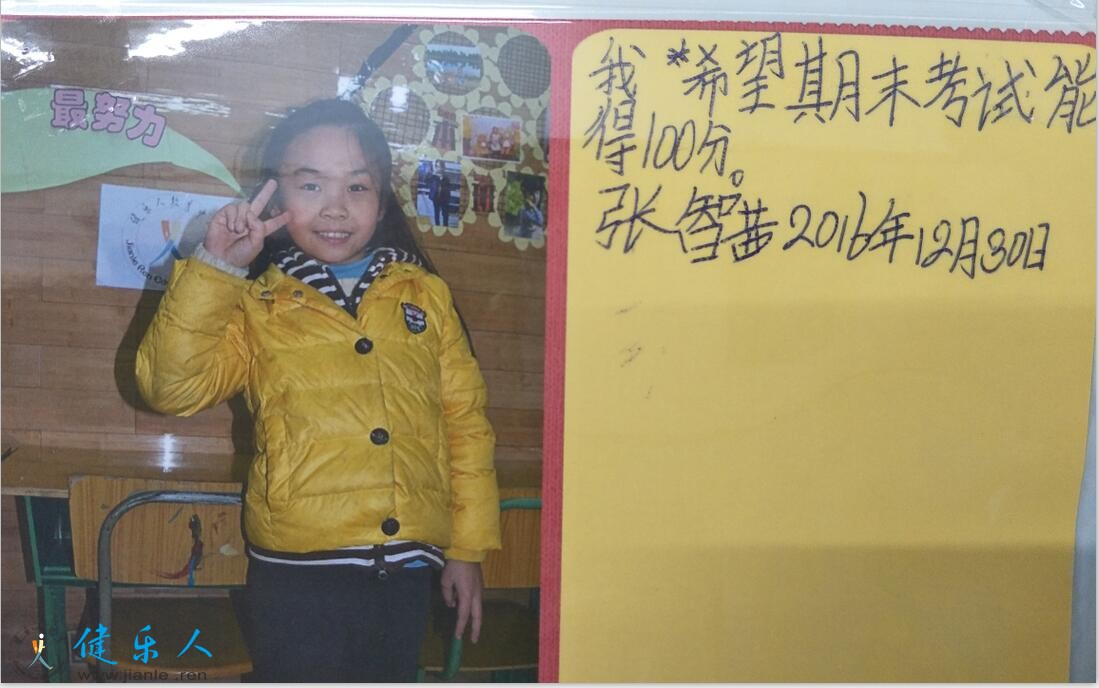 最努力
健乐人教育
Jianle Ren
我*希望期末考试能
得100分。
张智茜2016年12月30日
健乐人
www.jianle.ren